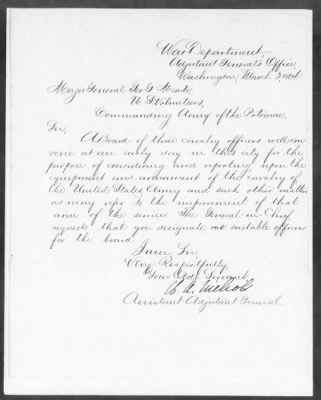 War Department,
Adjutant General's Office,
Washington, March 3, 1864
Major General Geo G. Meade,
U S Volunteers,
Commanding Army of the Potomac.
Sir,
A Board of three cavalry officers will con
vene at an early day in this city for the
purpose of considering and reporting upon the
equipment and armament of the cavalry of
the United States Army and such other matters
as may refer to the improvement of that
arm of the service. The General-in-Chief
requests that you designate one suitable officer
for the board.
I am Sir,
Very Respectfully,
Your Obdt Servant,
Assistant Adjutant General